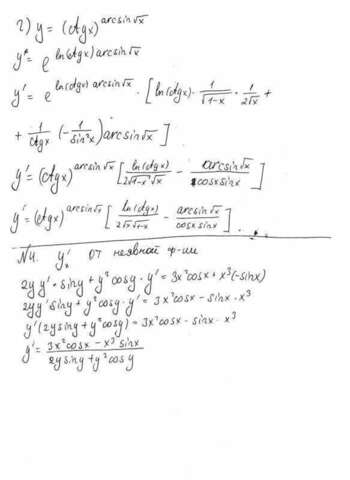 2) y = (ctgx)^arcsin√x
y = e^ln(ctgx) arcsin√x
y' = e^ln(ctgx) arcsin√x · [ln(ctgx) · 1/√(1-x) · 1/(2√x) +
+ 1/ctgx · (-1/sin²x) arcsin√x]
y' = (ctgx)^arcsin√x [ln(ctgx)/(2√(1-x) √x) - arcsin√x/(cosx sinx)]
y' = (ctgx)^arcsin√x [ln(ctgx)/(2√x √(1-x)) - arcsin√x/(cosx sinx)].
№4. y'ₓ от неявной ф-ии
2yy' · siny + y² cosy · y' = 3x² cosx + x³(-sinx)
2yy' siny + y² cosy · y' = 3x² cosx - sinx · x³
y'(2y siny + y² cosy) = 3x² cosx - sinx · x³
y' = (3x² cosx - x³ sinx)/(2y siny + y² cosy)